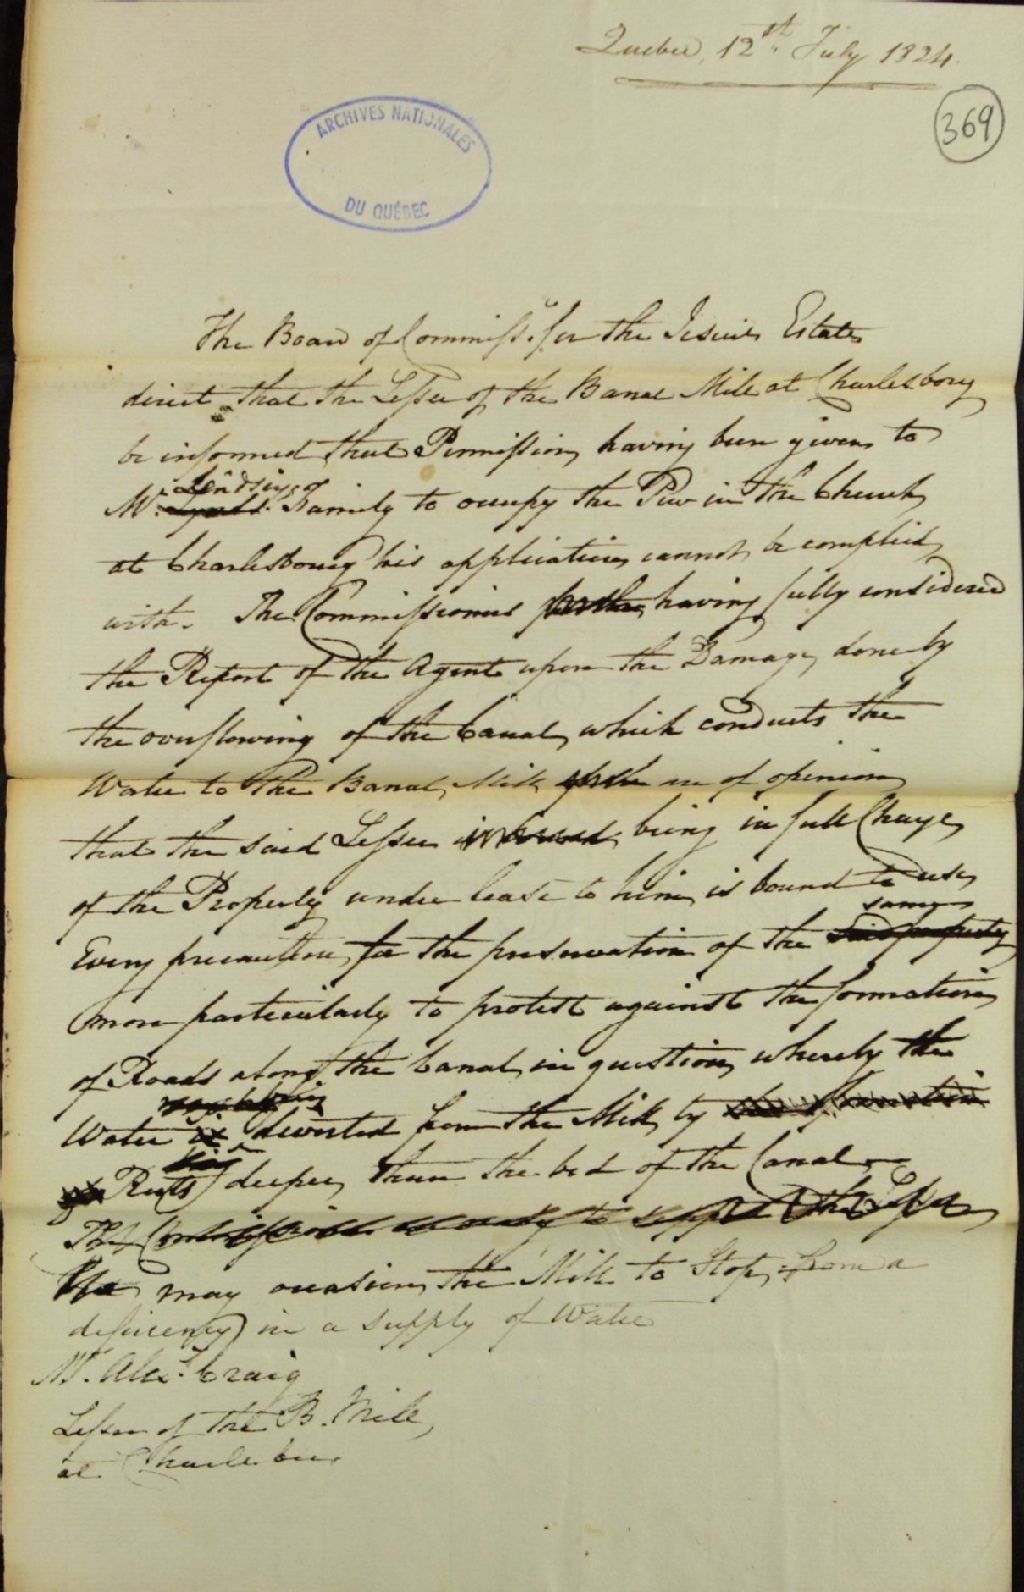 Quebec, 12th July 1824.
369
ARCHIVES NATIONALES
DU QUÉBEC
The Board of Commiss.rs for the Jesuits Estates
direct that the Lessee of the Banal Mill at Charlesbourg
be informed that Permission having been given to
Lindsay's
Mr. Family to occupy the Pew in the Church
at Charlesbourg his application cannot be complied
with. The Commissioners further having fully considered
the Report of the Agent upon the Damage done by
the overflowing of the Canal which conducts the
Water to the Banal Mill are of opinion
that the said Lessee being in full Charge
of the Property under lease to him is bound to use
same
Every precaution for the preservation of the said property
more particularly to protest against the formation
of Roads along the Canal in question whereby the
may be
Water is diverted from the Mill by the formation
of Ruts deeper than the bed of the Canal
The Commissioners to the Lessee
may occasion the Mill to Stop from a
deficiency in a supply of Water
Mr. Alexr. Craig
Lessee of the B. Mill
at Charlesbou.